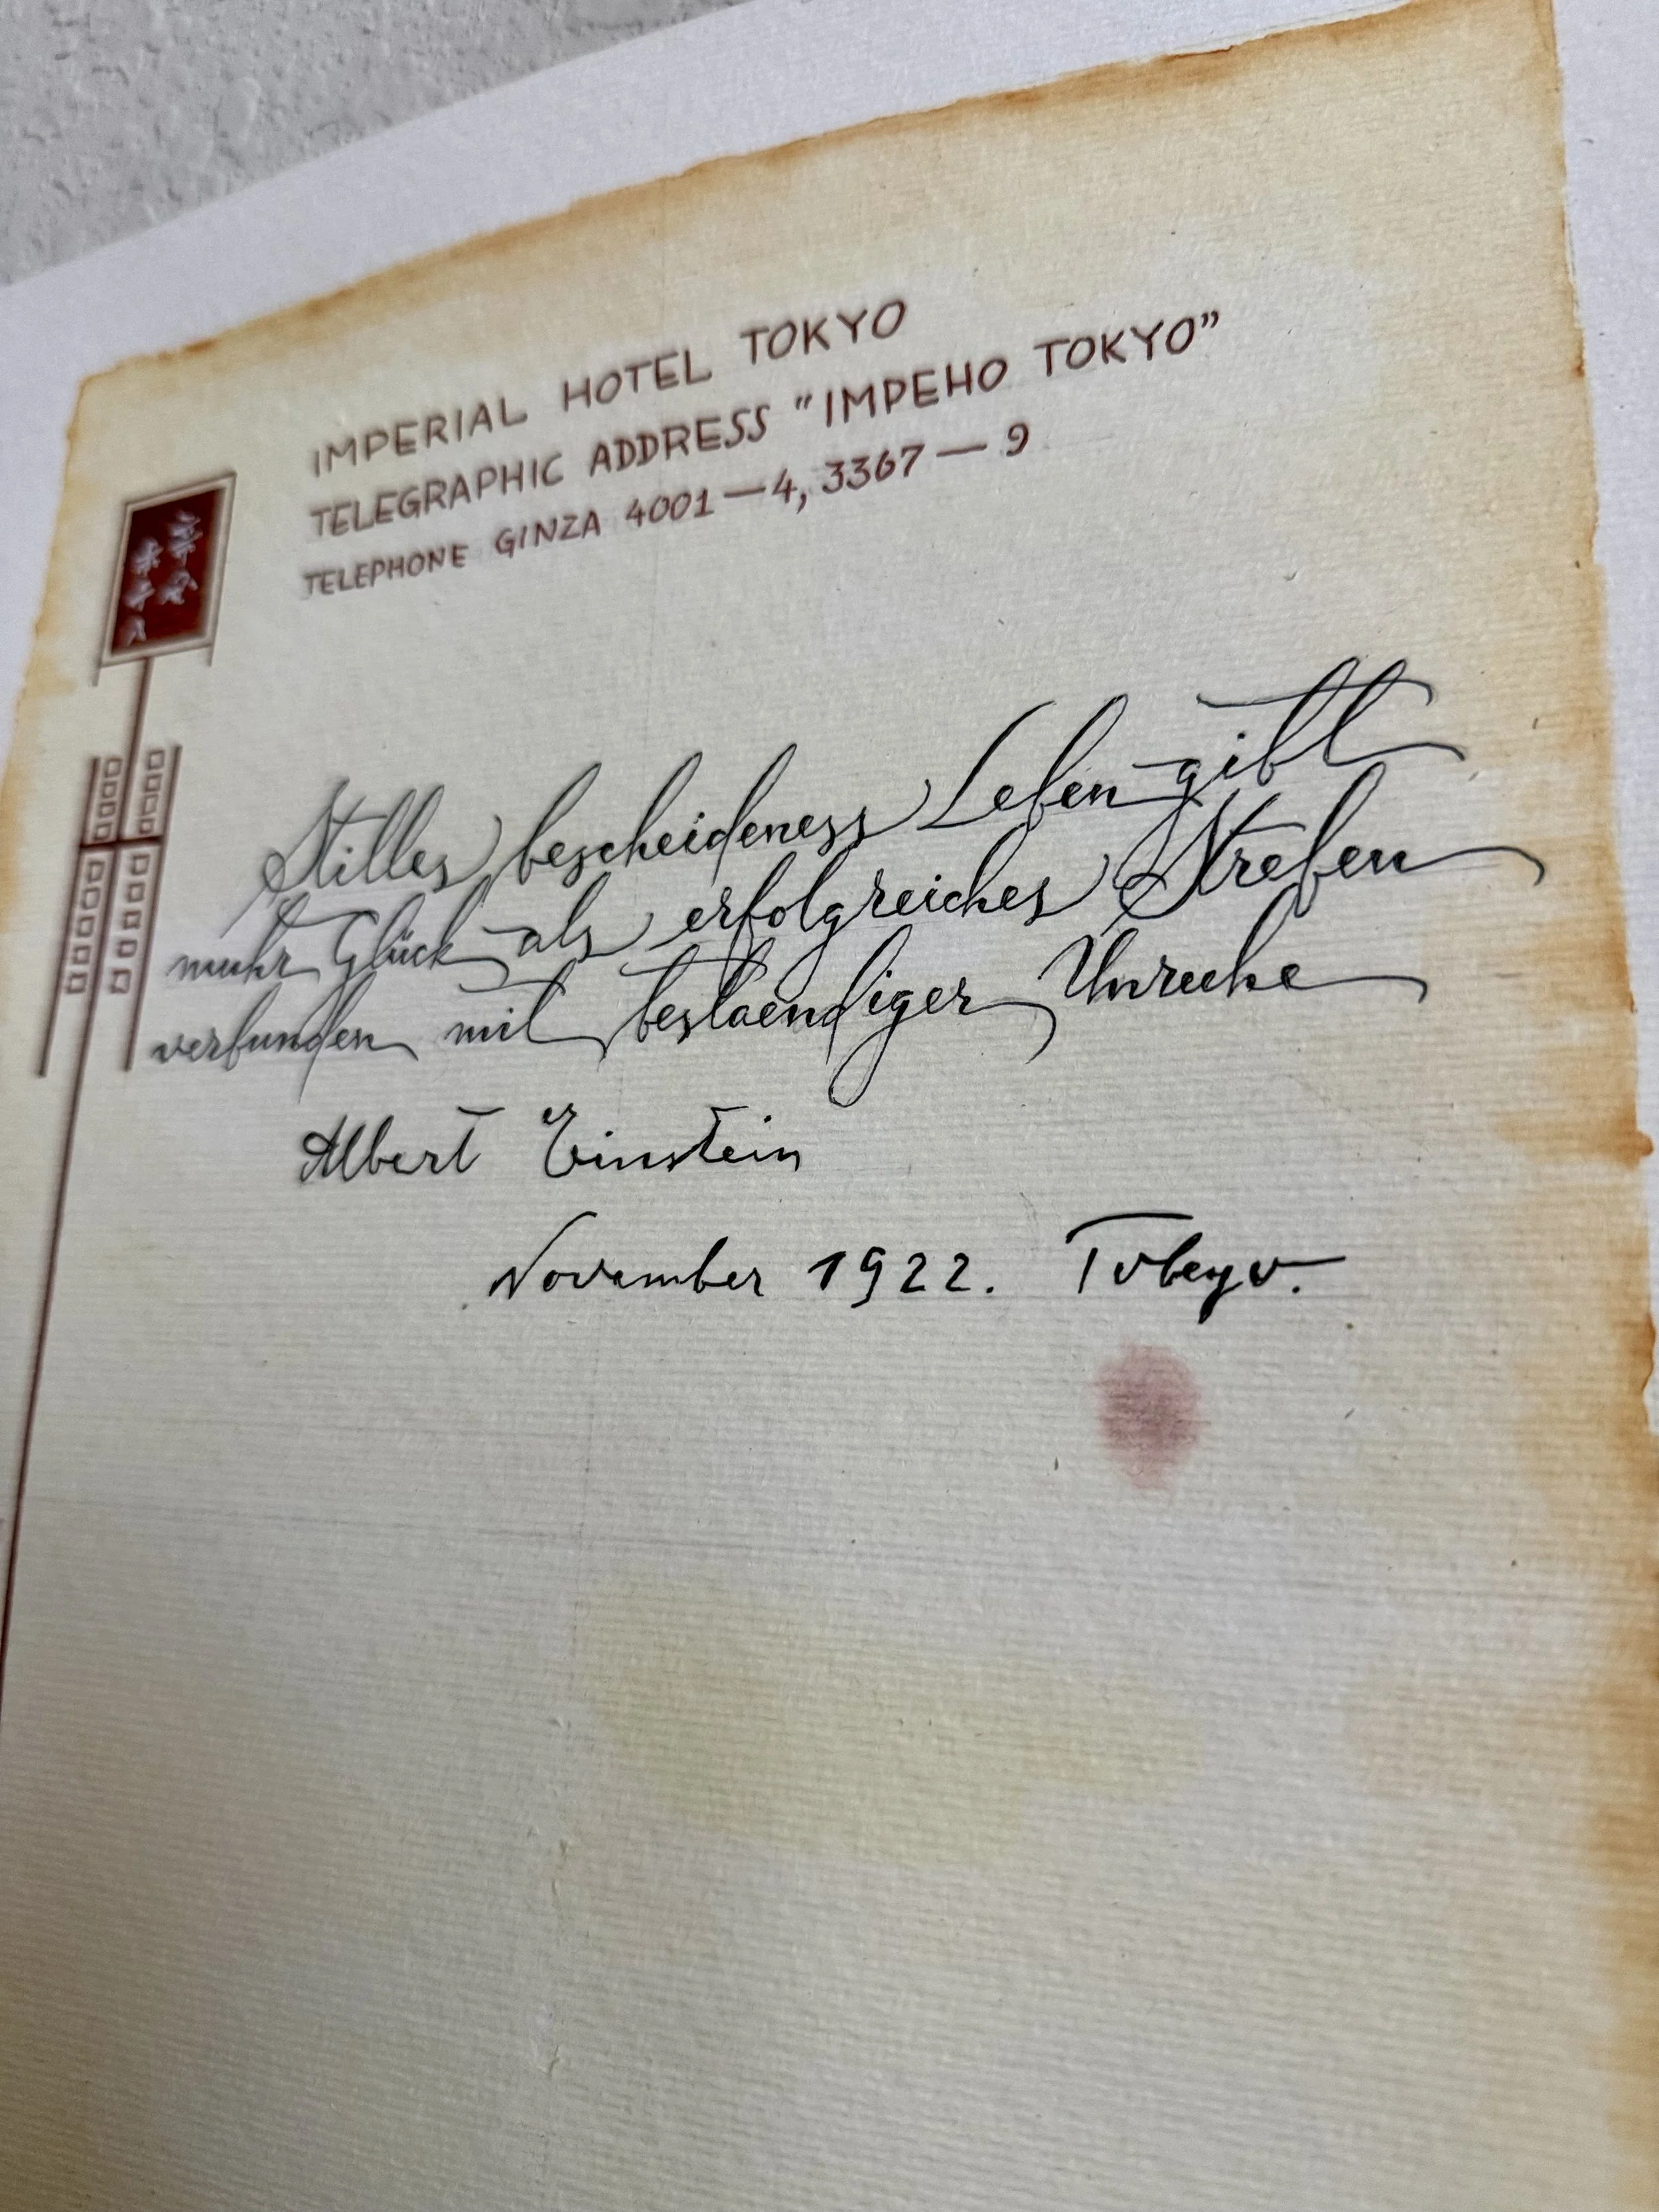 IMPERIAL HOTEL TOKYO
TELEGRAPHIC ADDRESS "IMPEHO TOKYO"
TELEPHONE GINZA 4001—4, 3367—9
Stilles bescheideness Leben gibt
mehr Glück als erfolgreiches Streben
verbunden mit bestaendiger Unruhe
Albert Einstein
November 1922. Tokyo.